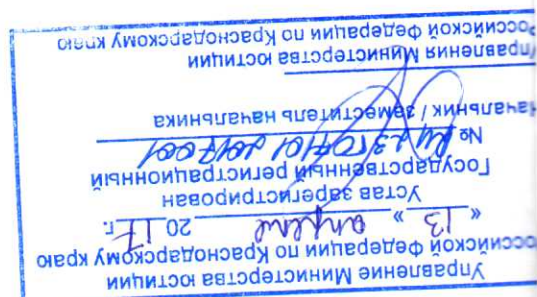 Управление Министерства юстиции
Российской Федерации по Краснодарскому краю
« 13 » апреля 20 17 г.
Устав зарегистрирован
Государственный регистрационный
№
Начальник / заместитель начальника
Управления Министерства юстиции
Российской Федерации по Краснодарскому краю